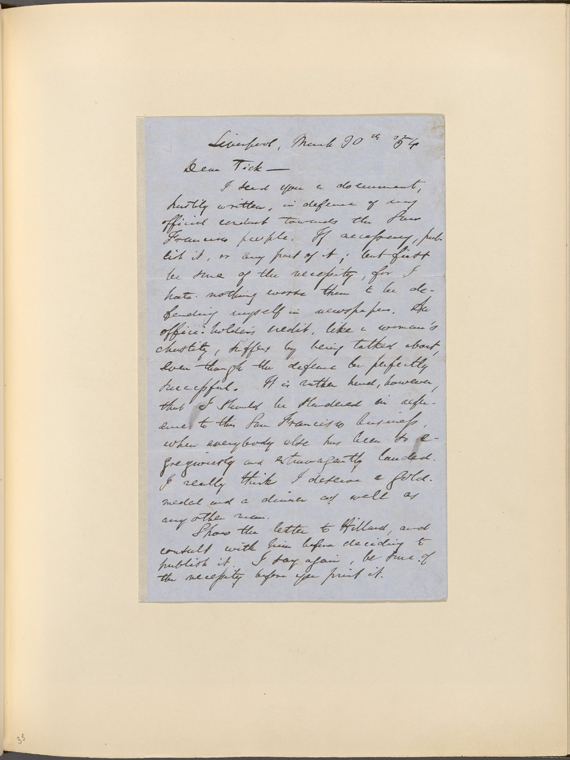 Liverpool, March 30th '54
Dear Tick —
I send you a document,
hastily written, in defence of my
official conduct towards the San
Francisco people. If necessary, pub-
lish it, or any part of it; but first
be sure of the necessity, for I
hate nothing worse than to be de-
fending myself in newspapers. An
office-holder's credit, like a woman's
chastity, suffers by being talked about,
even though the defence be perfectly
successful. It is rather hard, however,
that I should be slandered in refer-
ence to this San Francisco business,
when everybody else has been so e-
gregiously and extravagantly lauded.
I really think I deserve a gold-
medal and a dinner as well as
any other man.
Show the letter to Hillard, and
consult with him before deciding to
publish it. I say again, be sure of
the necessity before you print it.
33